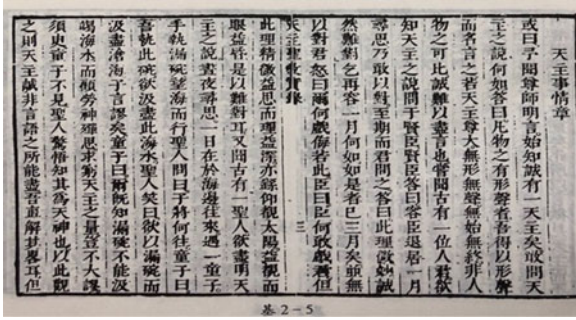 天主事情章
或曰予聞尊師明言始知誠有一天主矣敢問天
主之說何如答曰凡物之有形聲者吾得以形聲
而名言之若天主尊大無形無聲無始無終非人
物之可比誠難以盡言也嘗聞古有一位人君欲
知天主之說問于賢臣賢臣答曰容臣退居一月
尋思乃敢以對至期而君問之答曰此理微妙誠
然難對乞再容一月何如如是者已三月矣並無
以對君怒曰爾何戲侮若此臣曰臣何敢戲君但
天主聖教實錄 三
此理精微益思而理益深亦猶仰觀太陽益觀而
眼益昏是以難對耳又聞古有一聖人欲盡明天
主之說晝夜尋思一日在於海邊往來遇一童子
手執漏碗望海而行聖人問曰子將何往童子曰
吾執此碗欲汲盡此海水聖人笑曰欲以漏碗而
汲盡滄海子言謬矣童子曰爾既知漏碗不能汲
竭海水而顧勞神殫思求窮天主之量豈不大謬
須臾童子不見聖人驚悟知其為天神也以此觀
之則天主誠非言語之所能盡吾直解其畧耳但
基2-5